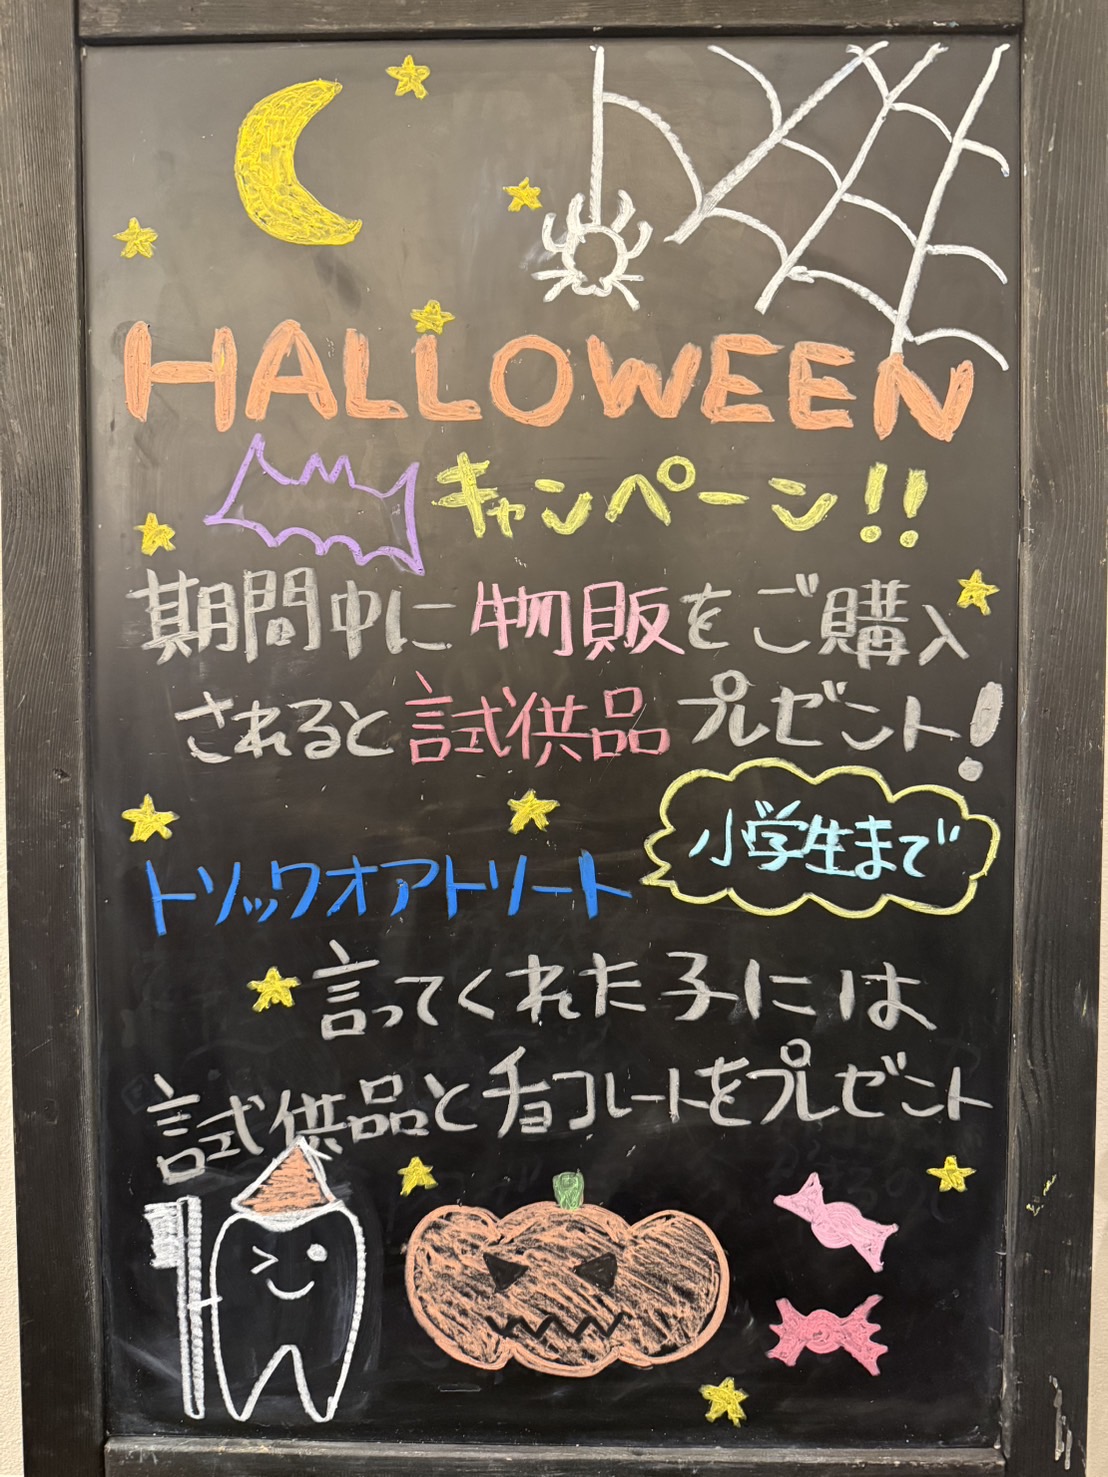 HALLOWEEN
キャンペーン!!
期間中に物販をご購入
されると試供品プレゼント!
小学生まで
トリックオアトリート
言ってくれた子には
試供品とチョコレートをプレゼント